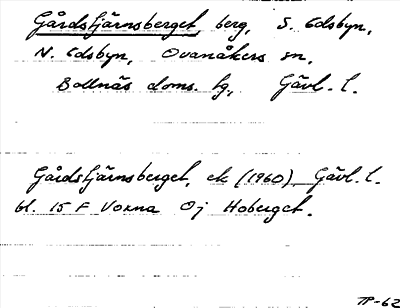 Gårdstjärnsberget, berg, S. Edsbyn,
N. Edsbyn, Ovanåkers sn,
Bollnäs doms. hg, Gävl. l.
Gårdstjärnsberget, ek (1960) Gävl. l.
bl. 15 F Voxna Öj Hoberget.
TP-62